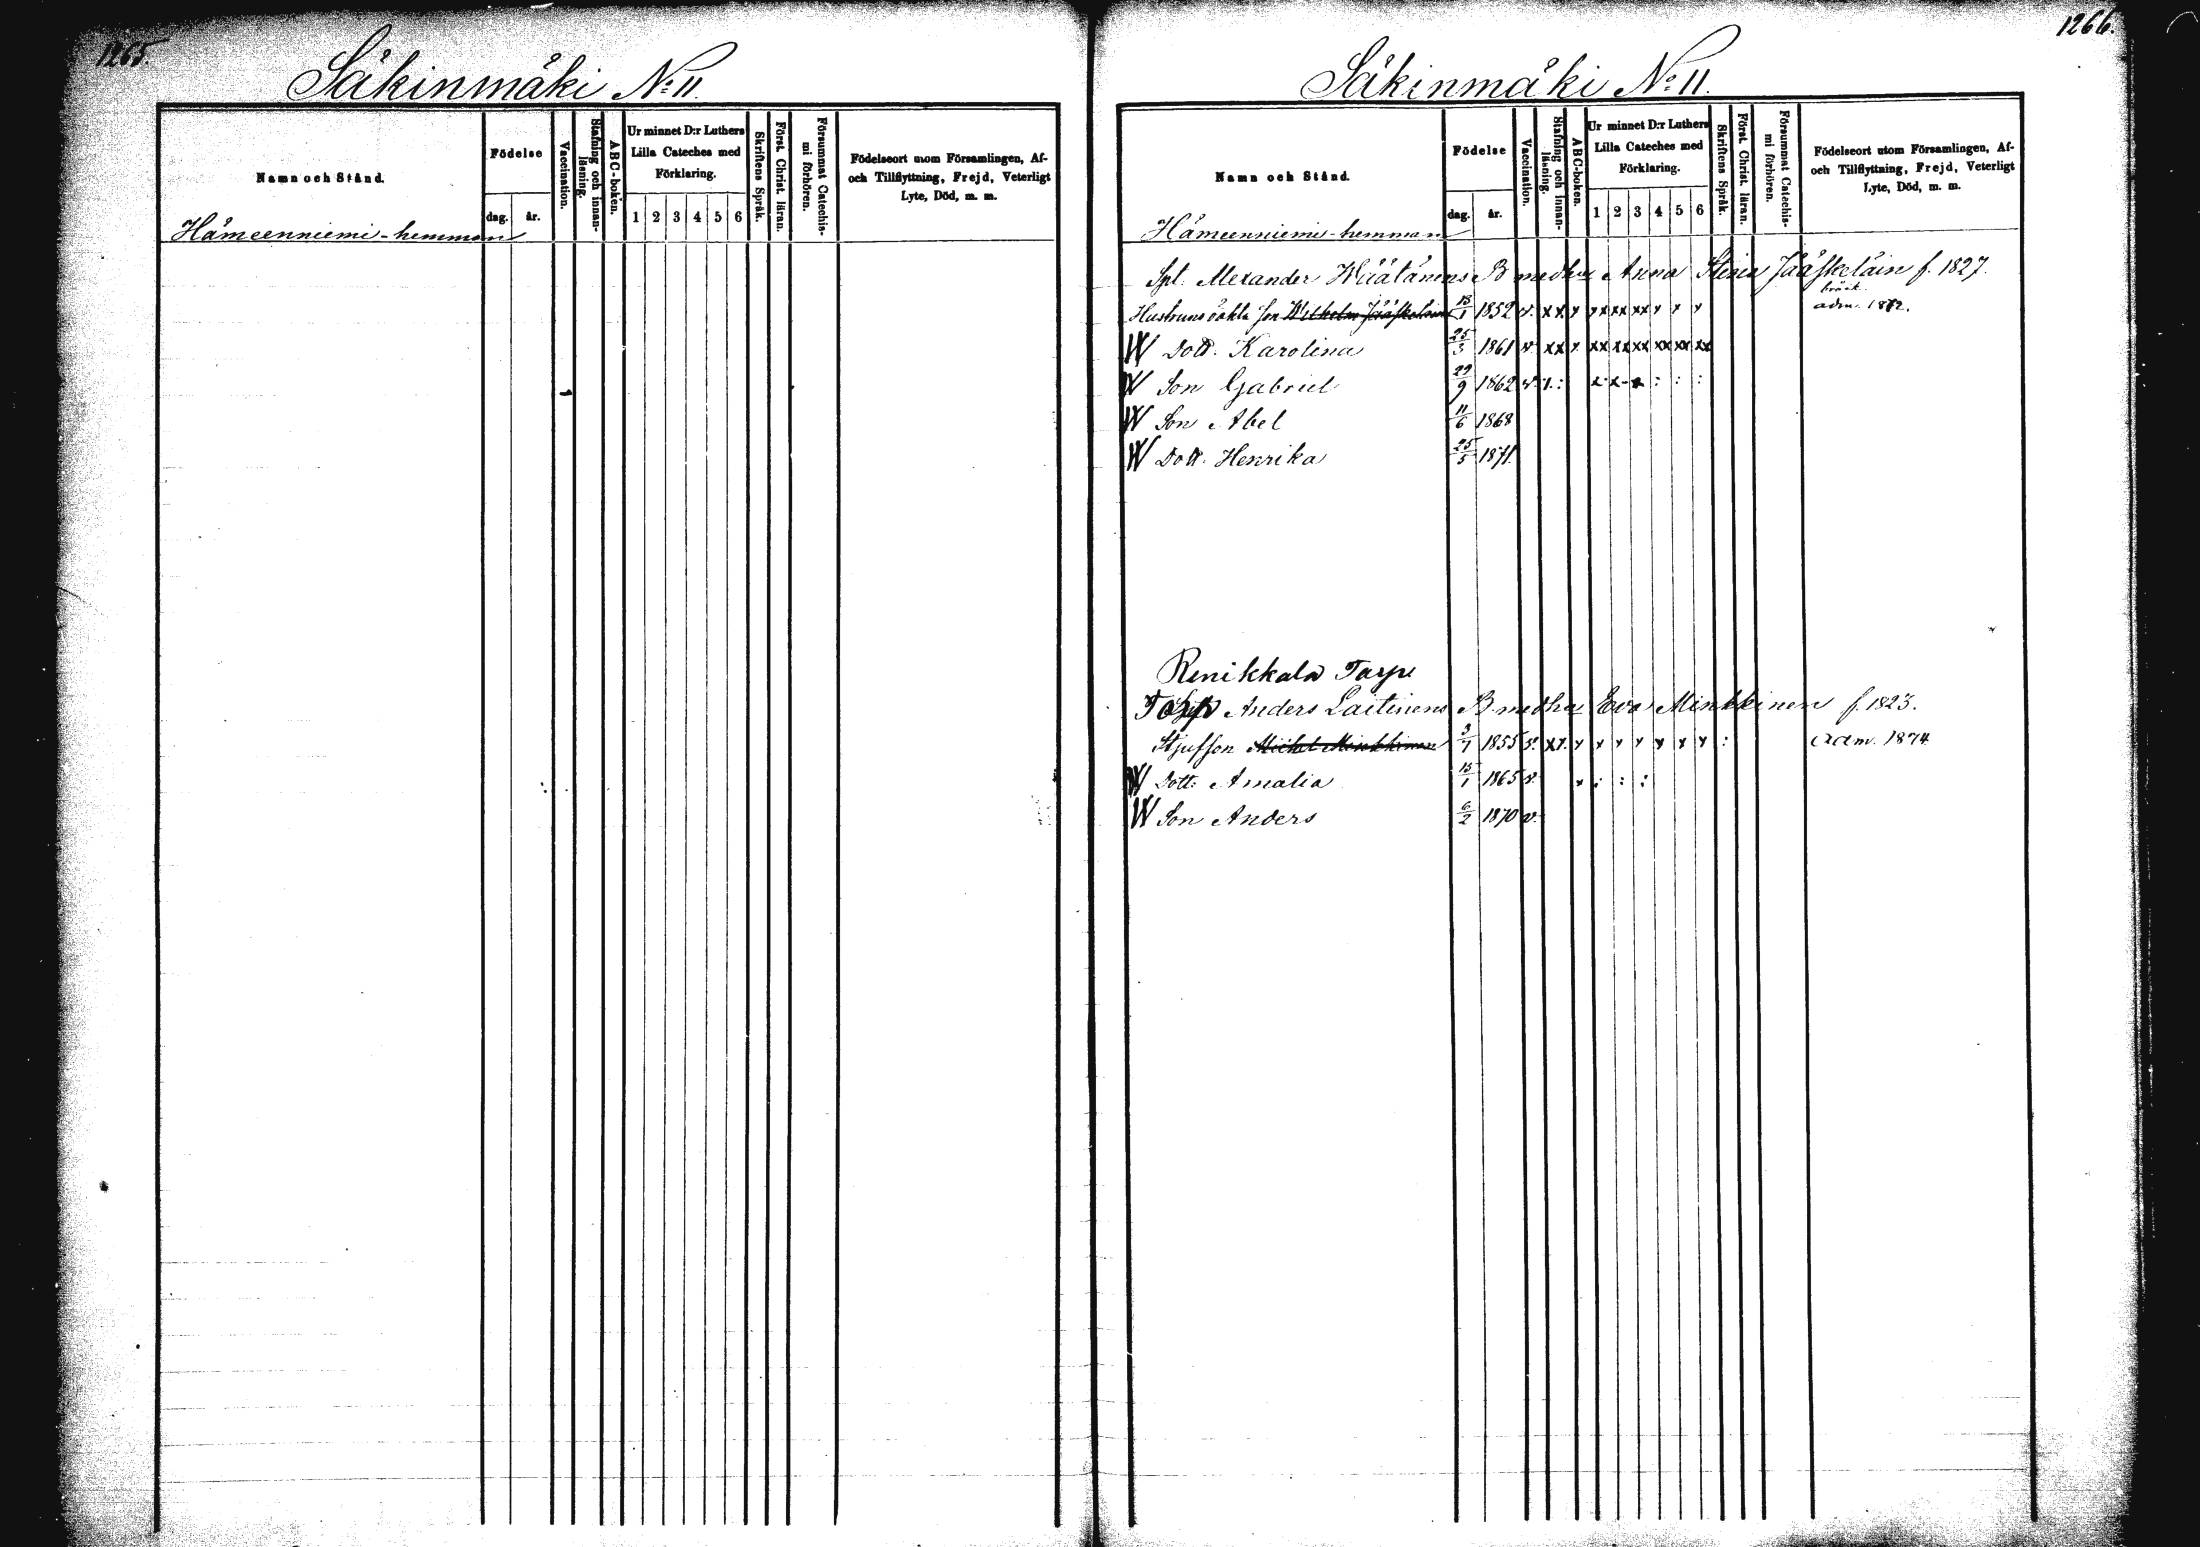 1265.
Säkinmäki No 11.
Namn och Stånd.
Födelse
dag.
år.
Vaccination.
Stafning och innan-
läsning.
ABC-boken.
Ur minnet D:r Luthers
Lilla Cateches med
Förklaring.
1 2 3 4 5 6
Skriftens Språk.
Först. Christ. läran.
Försummat Catechis-
mi förhören.
Födelseort utom Församlingen, Af-
och Tillflyttning, Frejd, Veterligt
Lyte, Död, m. m.
Hämeenniemi-hemman
1266.
Säkinmäki No 11.
Namn och Stånd.
Födelse
dag.
år.
Vaccination.
Stafning och innan-
läsning.
ABC-boken.
Ur minnet D:r Luthers
Lilla Cateches med
Förklaring.
1 2 3 4 5 6
Skriftens Språk.
Först. Christ. läran.
Försummat Catechis-
mi förhören.
Födelseort utom Församlingen, Af-
och Tillflyttning, Frejd, Veterligt
Lyte, Död, m. m.
Hämeenniemi-hemman
Alexander Wäätänens B medhu Anna Stina Jääskeläin f. 1827.
Hustruns oäkta son Wilhelm Jääskeläinen 1852 v. xx x xx xx xx x x x adm. 1872.
W Dott. Karolina 25/3 1861 v. xx x xx xx xx xx xx xx
W Son Gabriel 29/9 1862 v. x: x x x : : :
W Son Abel 11/6 1868
W Dott. Henrika 25/5 1871.
Renikkala Torp
Torp Anders Laitinens B medhu Eva Minkkinen f. 1823.
Styfson Michel Minkkinen 1855 v. xx x x x x x x x : adm. 1874
W Dott: Amalia 1865 v. x : : :
W Son Anders 6/2 1870 v.